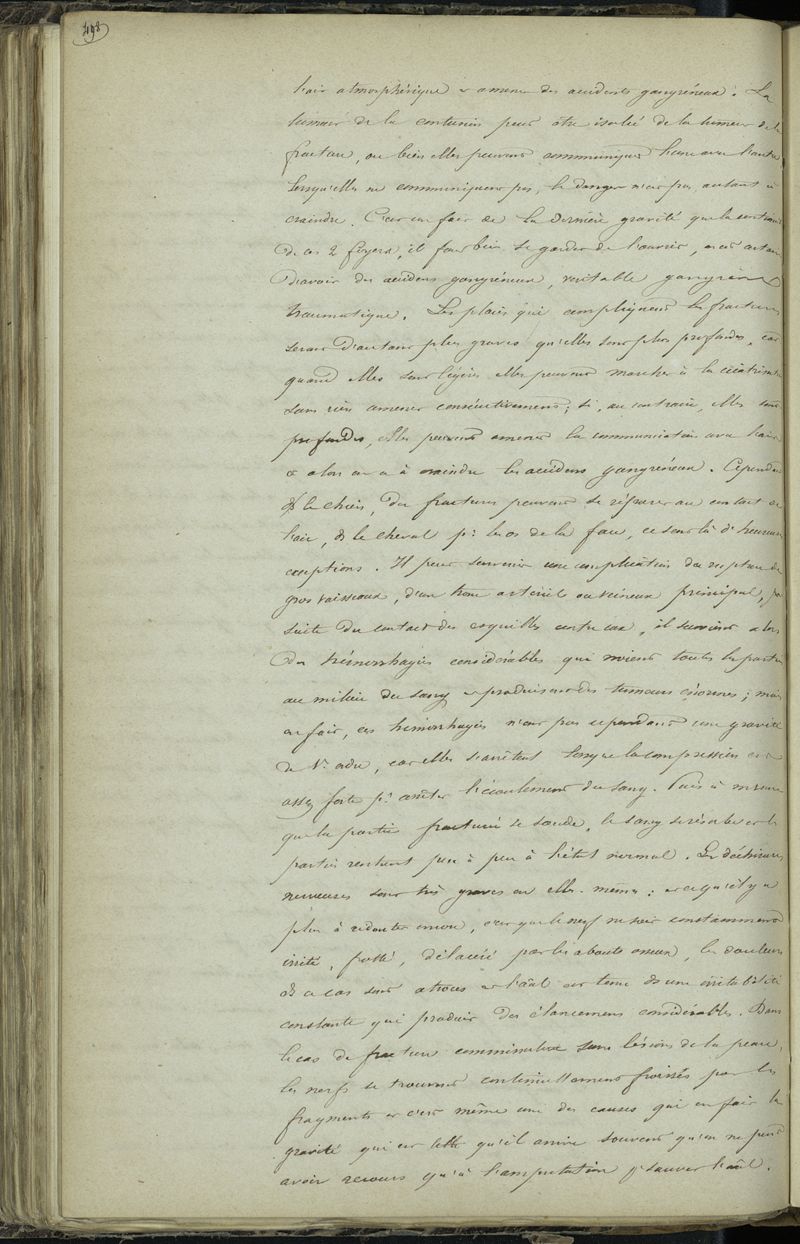 498
l'air atmosphérique et amener des accidents gangréneux. La
tumeur de la contusion peut être isolée de la tumeur de la
fracture, ou bien elles peuvent communiquer l'une avec l'autre
lorsqu'elles ne communiquent pas, le danger n'est pas autant à
craindre. C'est un fait de la dernière gravité que la
de ces 2 foyers, il faut bien se garder de l'ouvrir,
d'avoir des accidens gangréneux, véritable gangrène
traumatique. Les plaies qui compliquent les fractures
seront d'autant plus graves qu'elles sont plus profondes, car
quand elles sont légères elles peuvent marcher à la cicatrisation
sans rien amener consécutivement; si, au contraire, elles sont
profondes, elles peuvent amener la communication avec l'air
et alors on a à craindre les accidens gangréneux. Cependant
ds le chien, des fractures peuvent se réparer au contact de
l'air, ds le cheval pr les os de la face, ce sont là d'heureuses
exceptions. Il peut survenir une complication de rupture de
gros vaisseaux, d'un tronc artériel ou veineux principal, par
suite du contact des esquilles contre eux, il survient alors
des hémorrhagies considérables qui noient toutes les parties
au milieu du sang et produisent des tumeurs énormes; mais
en fait, ces hémorrhagies n'ont pas cependant une gravité
de 1er ordre, car elles s'arrêtent lorsque la compression est
assez forte pr arrêter l'écoulement du sang. Puis à mesure
que la partie fracturée se soude, le sang se résorbe et les
parties rentrent peu à peu à l'état normal. Les déchirures
nerveuses sont très graves en elles-mêmes: et ce qu'il y a
plus à redouter encore, c'est que le nerf ne soit constamment
irrité, frotté, dilacéré par les abouts osseux, les douleurs
ds ce cas sont atroces et l'aal est tenu ds une irritabilité
constante qui produit des élancemens considérables. Dans
le cas de fracture comminutive sans lésion de la peau,
les nerfs se trouvent continuellement froissés par les
fragments et c'est même une des causes qui en fait la
gravité qui est telle qu'il arrive souvent qu'on ne peut
avoir recours qu'à l'amputation pr sauver l'aal.